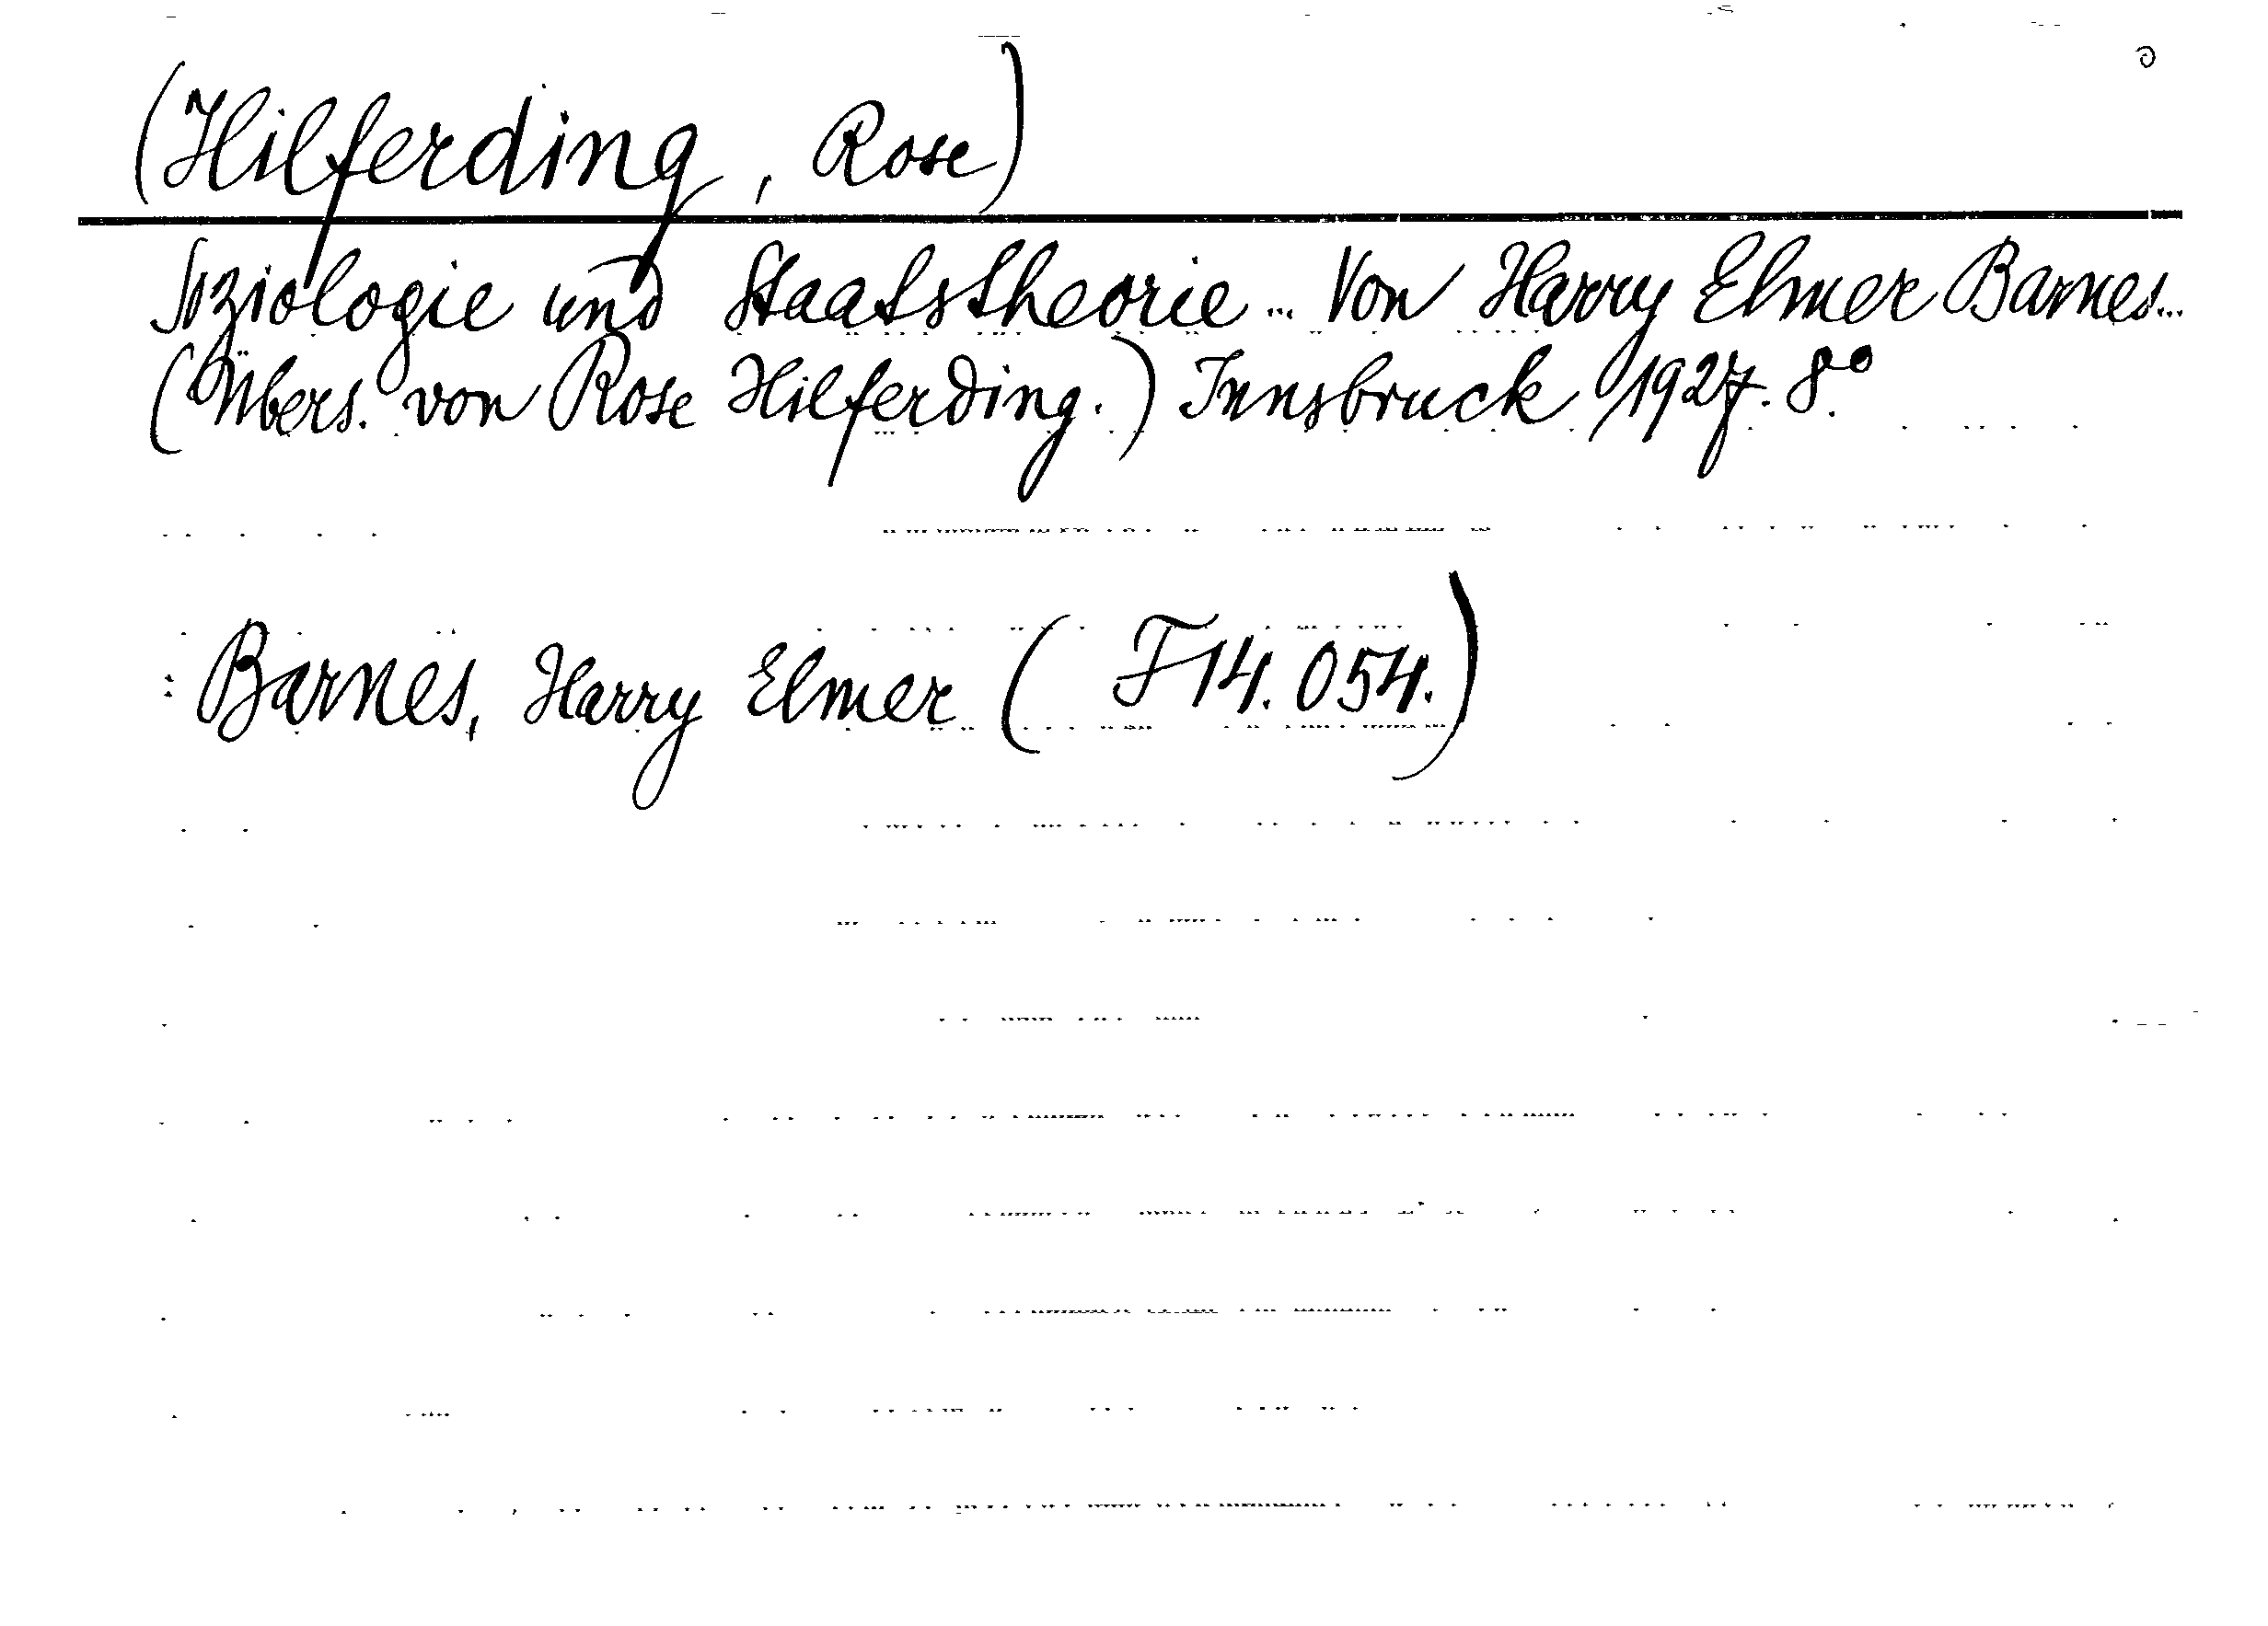 (Hilferding, Rose)
Soziologie und Staatstheorie... Von Harry Elmer Barnes...
(Übers. von Rose Hilferding.) Innsbruck 1927. 8°.
: Barnes, Harry Elmer (F14.054.)